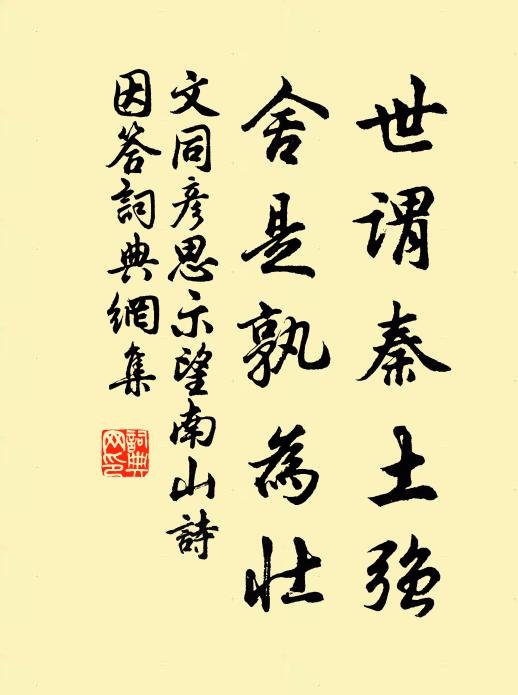 世謂秦土強
舍是孰為壯
文同彦思示望南山詩
因答詞典網集
詞典网印